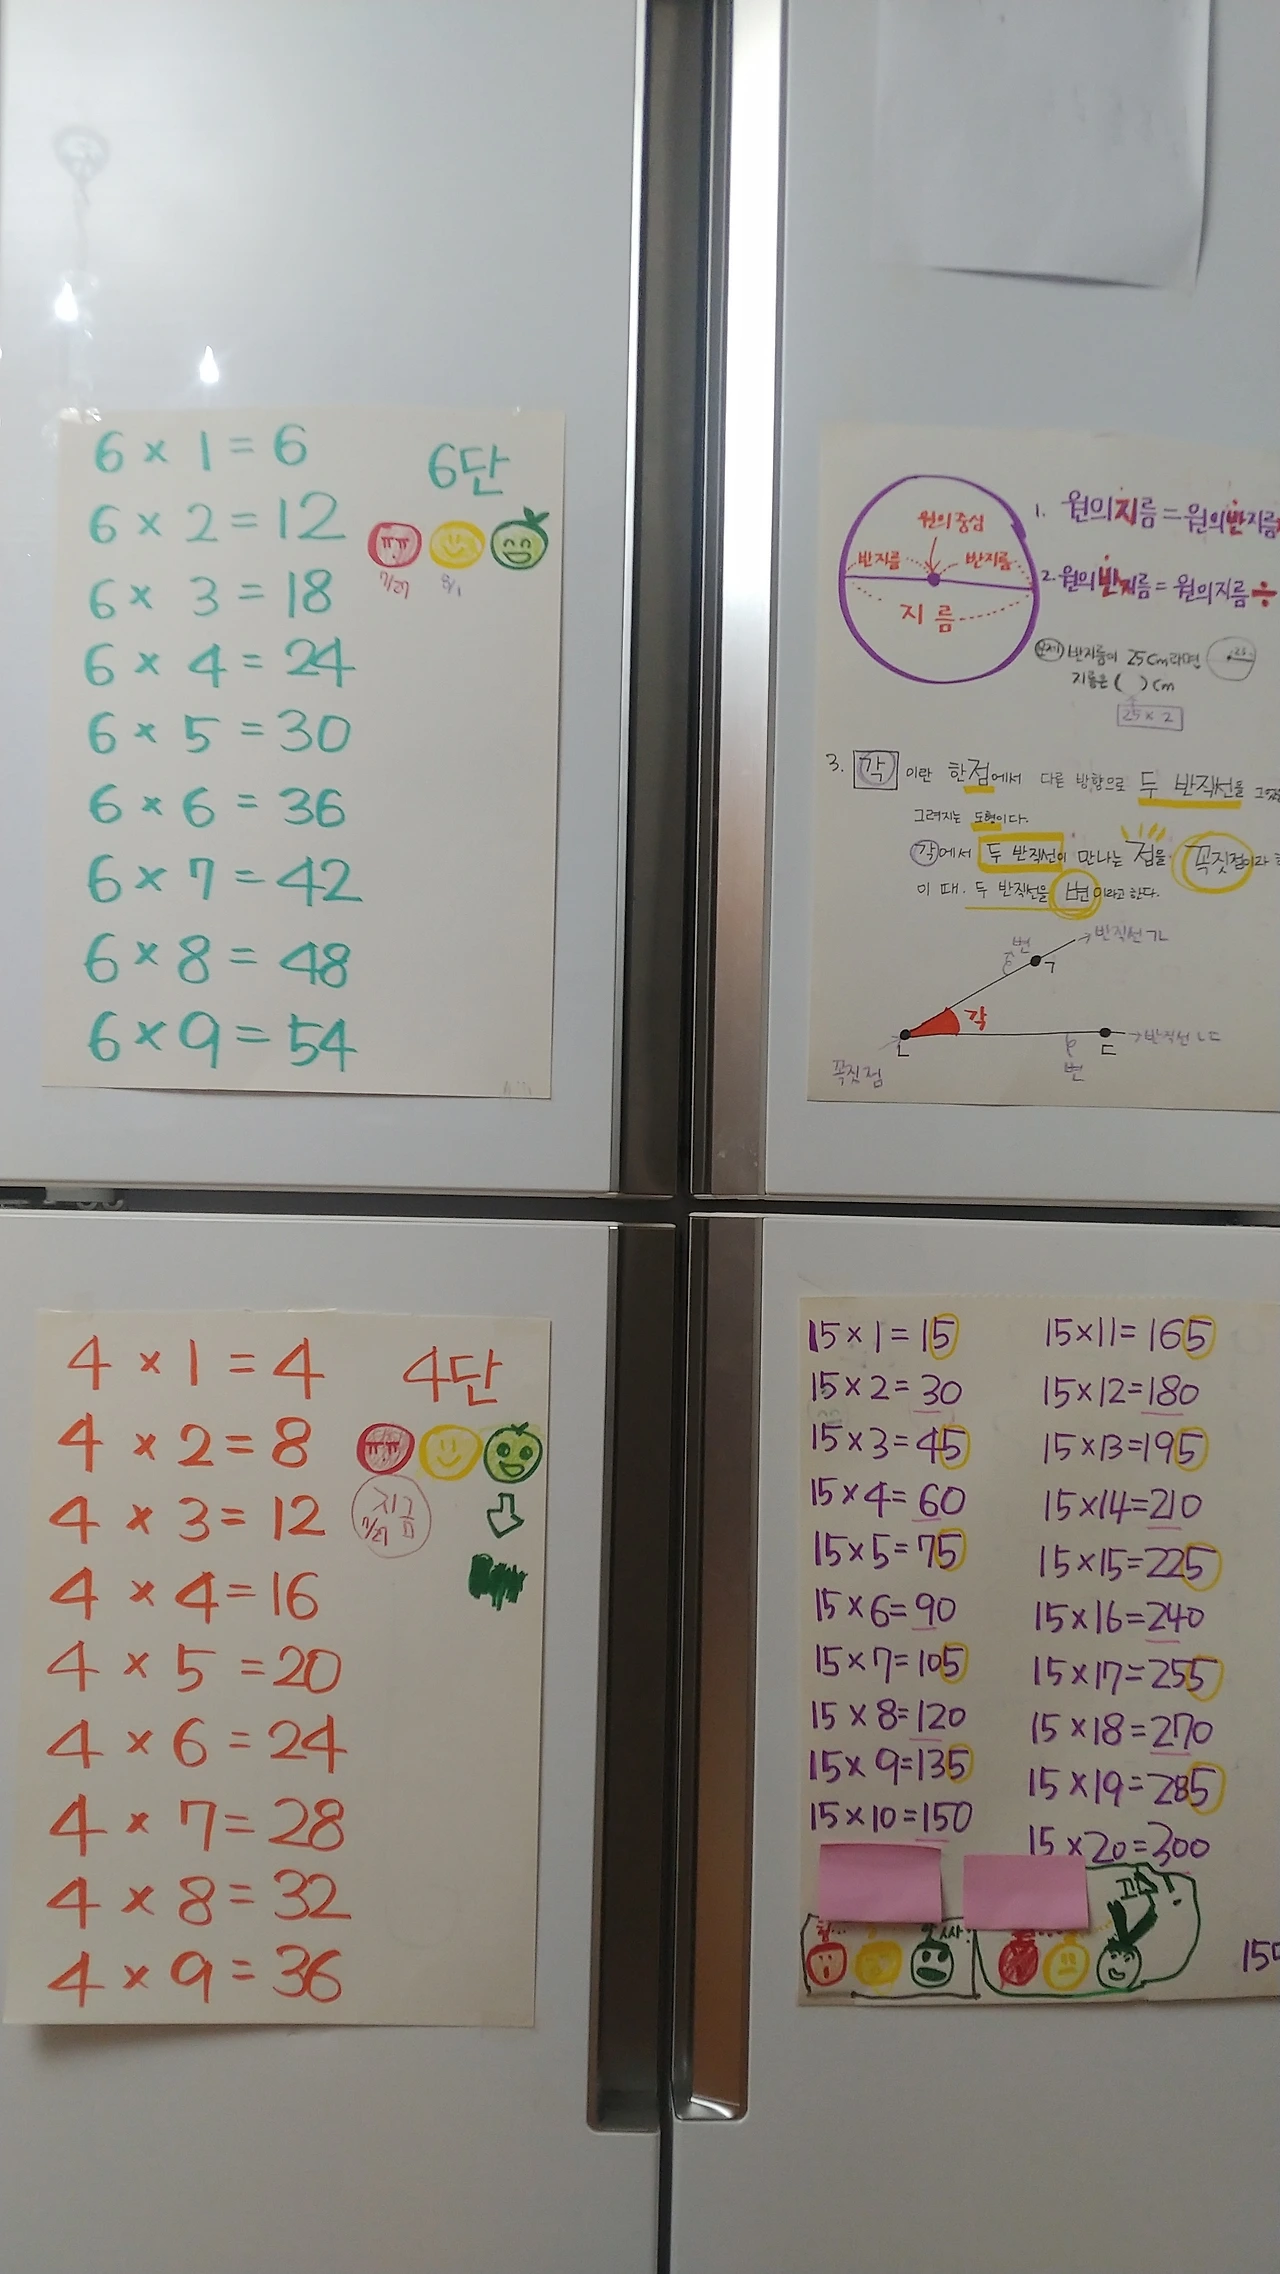 6 × 1 = 6
6단
6 × 2 = 12
7/27
8/1
6 × 3 = 18
6 × 4 = 24
6 × 5 = 30
6 × 6 = 36
6 × 7 = 42
6 × 8 = 48
6 × 9 = 54
원의중심
반지름
반지름
지름
1. 원의지름=원의반지름
2. 원의반지름=원의지름÷
문제 반지름이 25cm라면
지름은 ( ) cm
25
25 × 2
3. 각 이란 한점에서 다른 방향으로 두 반직선을
그려지는 도형이다.
각에서 두 반직선이 만나는 점을 꼭짓점이라
이 때. 두 반직선을 변이라고 한다.
변
→반직선 ㄴㄱ
ㄱ
각
ㄴ
ㄷ
→반직선 ㄴㄷ
꼭짓점
변
4 × 1 = 4
4단
4 × 2 = 8
4 × 3 = 12
지금
7/27
4 × 4 = 16
4 × 5 = 20
4 × 6 = 24
4 × 7 = 28
4 × 8 = 32
4 × 9 = 36
15 × 1 = 15
15 × 2 = 30
15 × 3 = 45
15 × 4 = 60
15 × 5 = 75
15 × 6 = 90
15 × 7 = 105
15 × 8 = 120
15 × 9 = 135
15 × 10 = 150
15 × 11 = 165
15 × 12 = 180
15 × 13 = 195
15 × 14 = 210
15 × 15 = 225
15 × 16 = 240
15 × 17 = 255
15 × 18 = 270
15 × 19 = 285
15 × 20 = 300